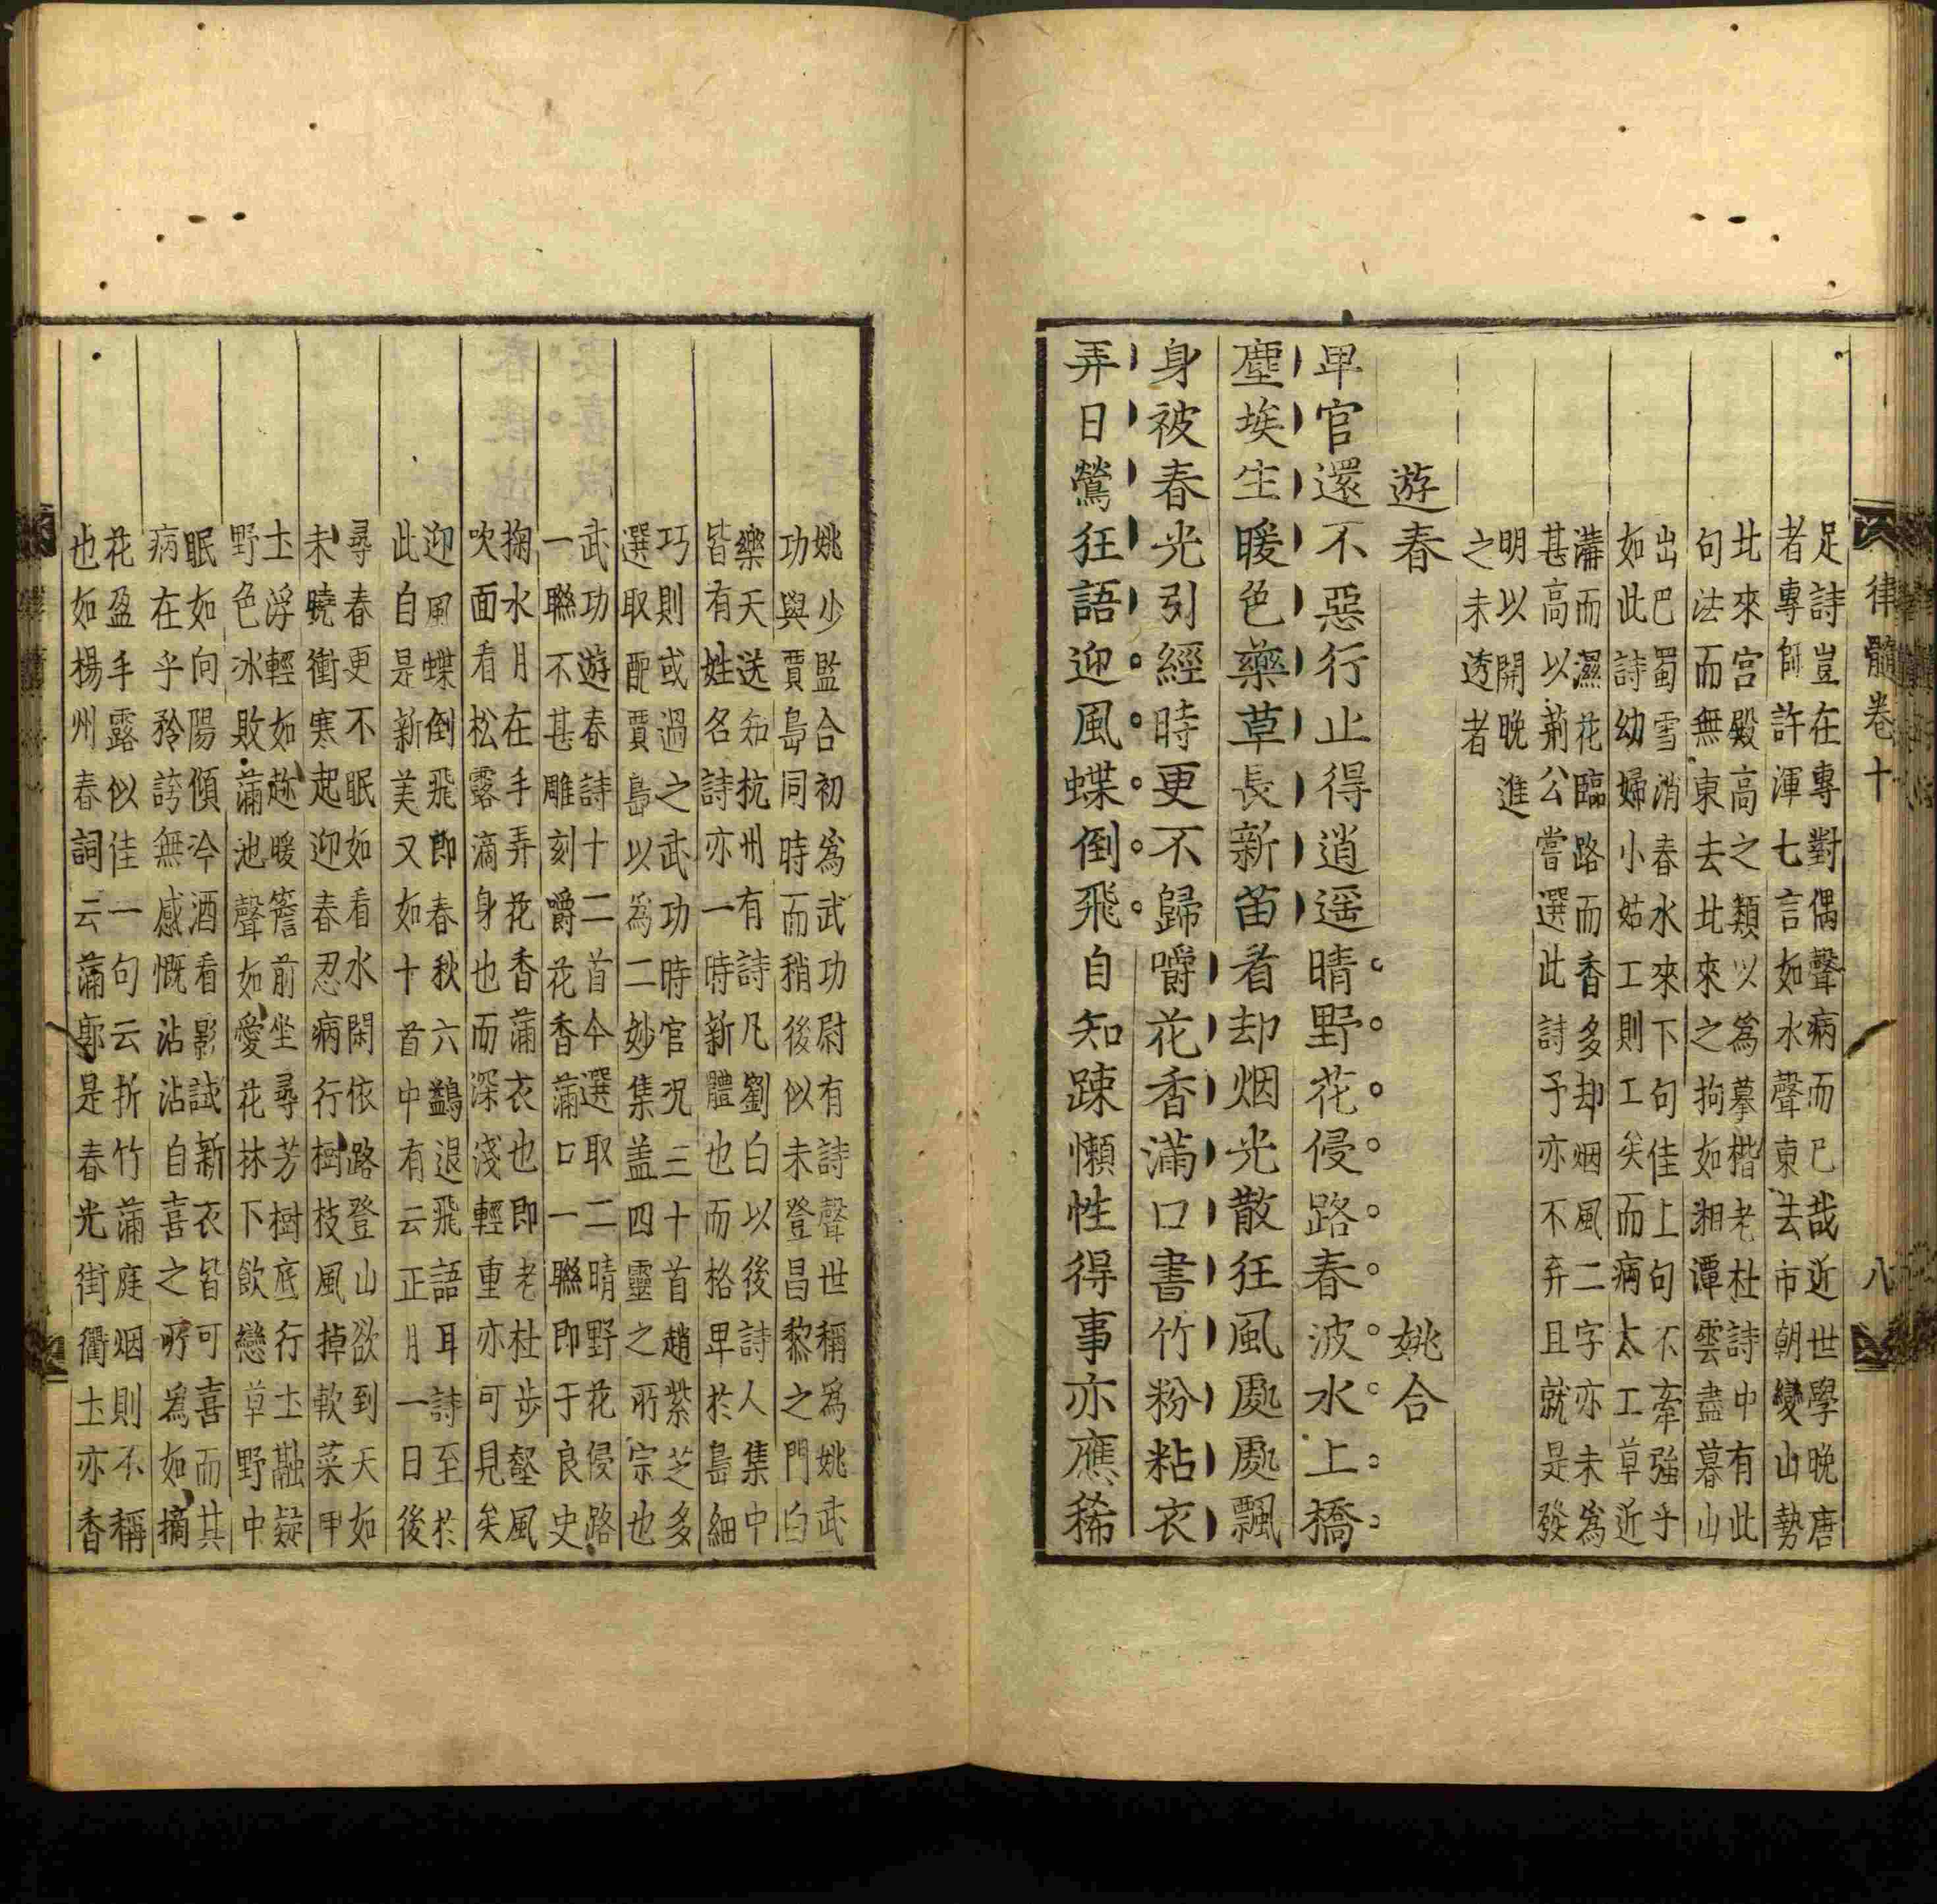 律髓卷十 八
足詩豈在專對偶聲病而已哉近世學晚唐
者專師許渾七言如水聲東去市朝變山勢
北來宮殿高之類以為摹楷老杜詩中有此
句法而無東去北來之拘如湘潭雲盡暮山
出巴蜀雪消春水來下句佳上句不牽強乎
如此詩幼婦小姑工則工矣而病太工草近
溝而濕花臨路而香多却烟風二字亦未為
甚高以荊公嘗選此詩予亦不弃且就是發
明以開晚進
之未透者
遊春 姚合
卑官還不惡行止得逍遥晴野花侵路春波水上橋
塵埃生暖色藥草長新苗看却烟光散狂風處處飄
身被春光引經時更不歸嚼花香滿口書竹粉粘衣
弄日鶯狂語迎風蝶倒飛自知踈懶性得事亦應稀
姚少監合初為武功尉有詩聲世稱為姚武
功與賈島同時而稍後似未登昌黎之門白
樂天送知杭州有詩凡劉白以後詩人集中
皆有姓名詩亦一時新體也而格卑於島細
巧則或過之武功時官況三十首趙紫芝多
選取配賈島以為二妙集盖四靈之所宗也
武功遊春詩十二首今選取二晴野花侵路
一聯不甚雕刻嚼花香滿口一聯即于良史
掬水月在手弄花香滿衣也即老杜步壑風
吹面看松露滴身也而深淺輕重亦可見矣
迎風蝶倒飛即春秋六鷁退飛語耳詩至於
此自是新美又如十首中有云正月一日後
尋春更不眠如看水閑依路登山欲到天如
未曉衝寒起迎春忍病行樹枝風掉軟菜甲
土浮輕如趂暖簷前坐尋芳樹底行土融疑
野色冰敗滿池聲如愛花林下飲戀草野中
眠如向陽傾冷酒看影試新衣皆可喜而其
病在乎矜誇無感慨沾沾自喜之所為如摘
花盈手露似佳一句云折竹滿庭烟則不稱
也如楊州春詞云滿郭是春光街衢土亦香